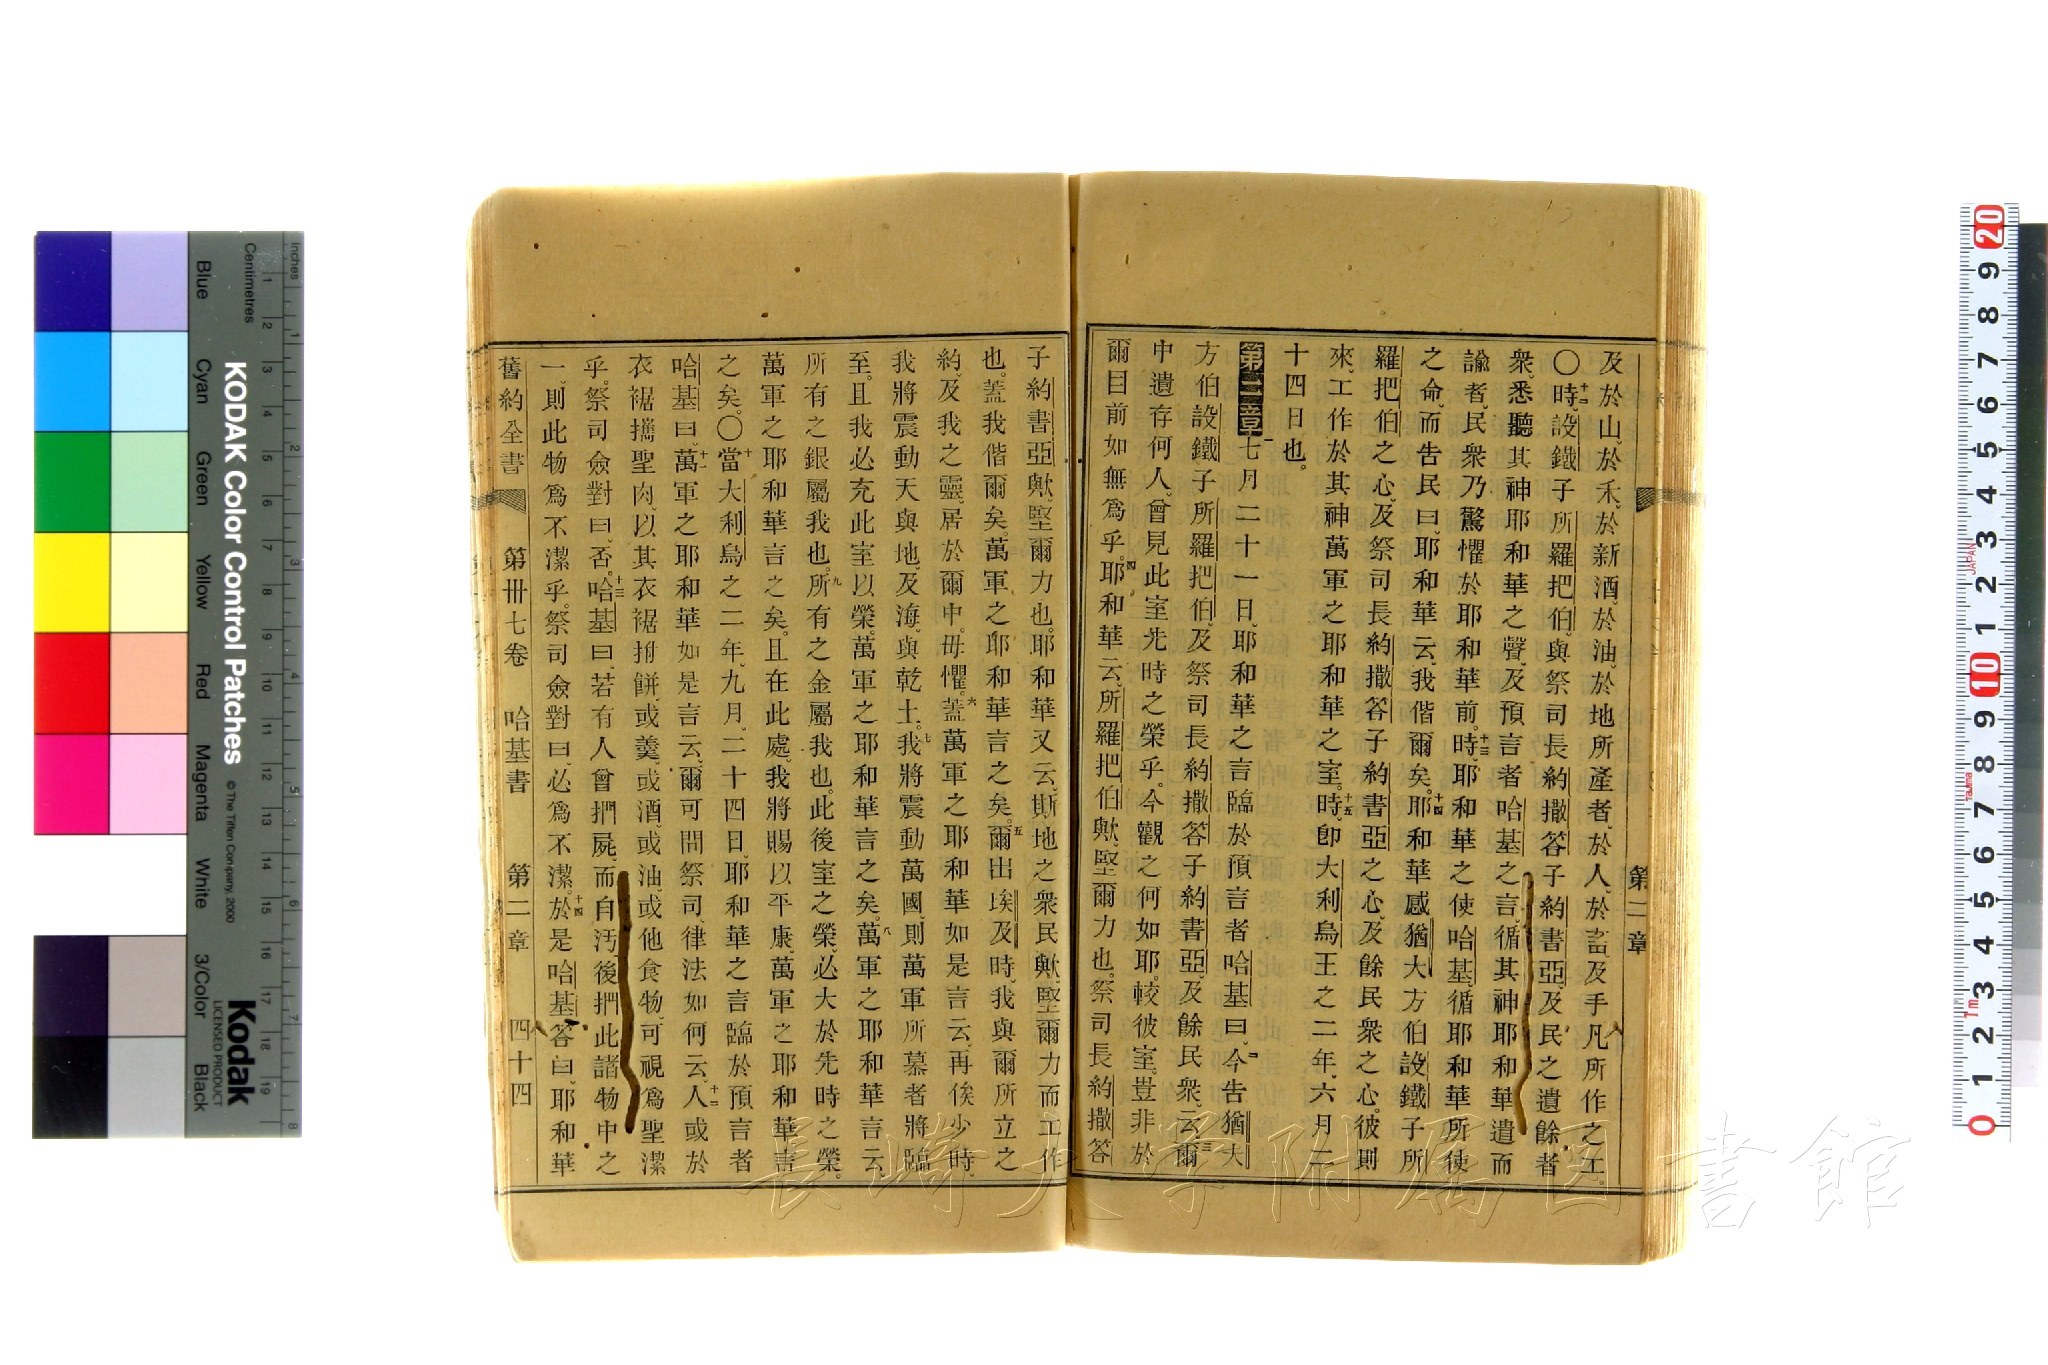 第二章
及於山、於禾、於新酒、於油、於地所產者、於人、於畜、及手凡所作之工。
〇十二時、設鐵子所羅把伯、與祭司長約撒答子約書亞、及民之遺餘者
衆、悉聽其神耶和華之聲、及預言者哈基之言、循其神耶和華遣而
諭者、民衆乃驚懼於耶和華前。十三時、耶和華之使哈基、循耶和華所使
之命、而告民曰、耶和華云、我偕爾矣。十四耶和華感猶大方伯設鐵子所
羅把伯之心、及祭司長約撒答子約書亞之心、及餘民衆之心。彼則
來、工作於其神萬軍之耶和華之室。十五時、卽大利烏王之二年、六月二
十四日也。
第二章一七月二十一日、耶和華之言臨於預言者哈基曰、二今告猶大
方伯設鐵子所羅把伯、及祭司長約撒答子約書亞、及餘民衆、云、三爾
中遺存何人、曾見此室先時之榮乎。今觀之何如耶。較彼室。豈非於
爾目前如無爲乎。四耶和華云、所羅把伯歟、堅爾力也。祭司長約撒答
子約書亞歟、堅爾力也。耶和華又云、斯地之衆民歟、堅爾力而工作
也。蓋我偕爾矣。萬軍之耶和華言之矣。五爾出埃及時、我與爾所立之
約、及我之靈、居於爾中。毋懼。六蓋萬軍之耶和華如是言云、再俟少時、
我將震動天與地、及海、與乾土。七我將震動萬國、則萬軍所慕者將臨
至。且我必充此室以榮。萬軍之耶和華言之矣。八萬軍之耶和華言云、
所有之銀屬我也。九所有之金屬我也。此後室之榮、必大於先時之榮。
萬軍之耶和華言之矣。且在此處、我將賜以平康。萬軍之耶和華言
之矣。〇十當大利烏之二年、九月、二十四日、耶和華之言臨於預言者
哈基曰、十一萬軍之耶和華如是言云、爾可問祭司、律法如何云、十二人或於
衣裾攜聖肉、以其衣裾拊餅、或羹、或酒、或油、或他食物、可視爲聖潔
乎。祭司僉對曰、否。十三哈基曰、若有人曾捫屍、而自汚、後捫此諸物中之
一、則此物爲不潔乎。祭司僉對曰、必爲不潔。十四於是哈基答曰、耶和華
舊約全書 第卅七卷 哈基書 第二章 四十四
KODAK Color Control Patches
© The Tiffen Company, 2000
Kodak
LICENSED PRODUCT
Inches
Centimetres
Blue Cyan Green Yellow Red Magenta White 3/Color Black
JAPAN
Tajima
長崎大学附属図書館